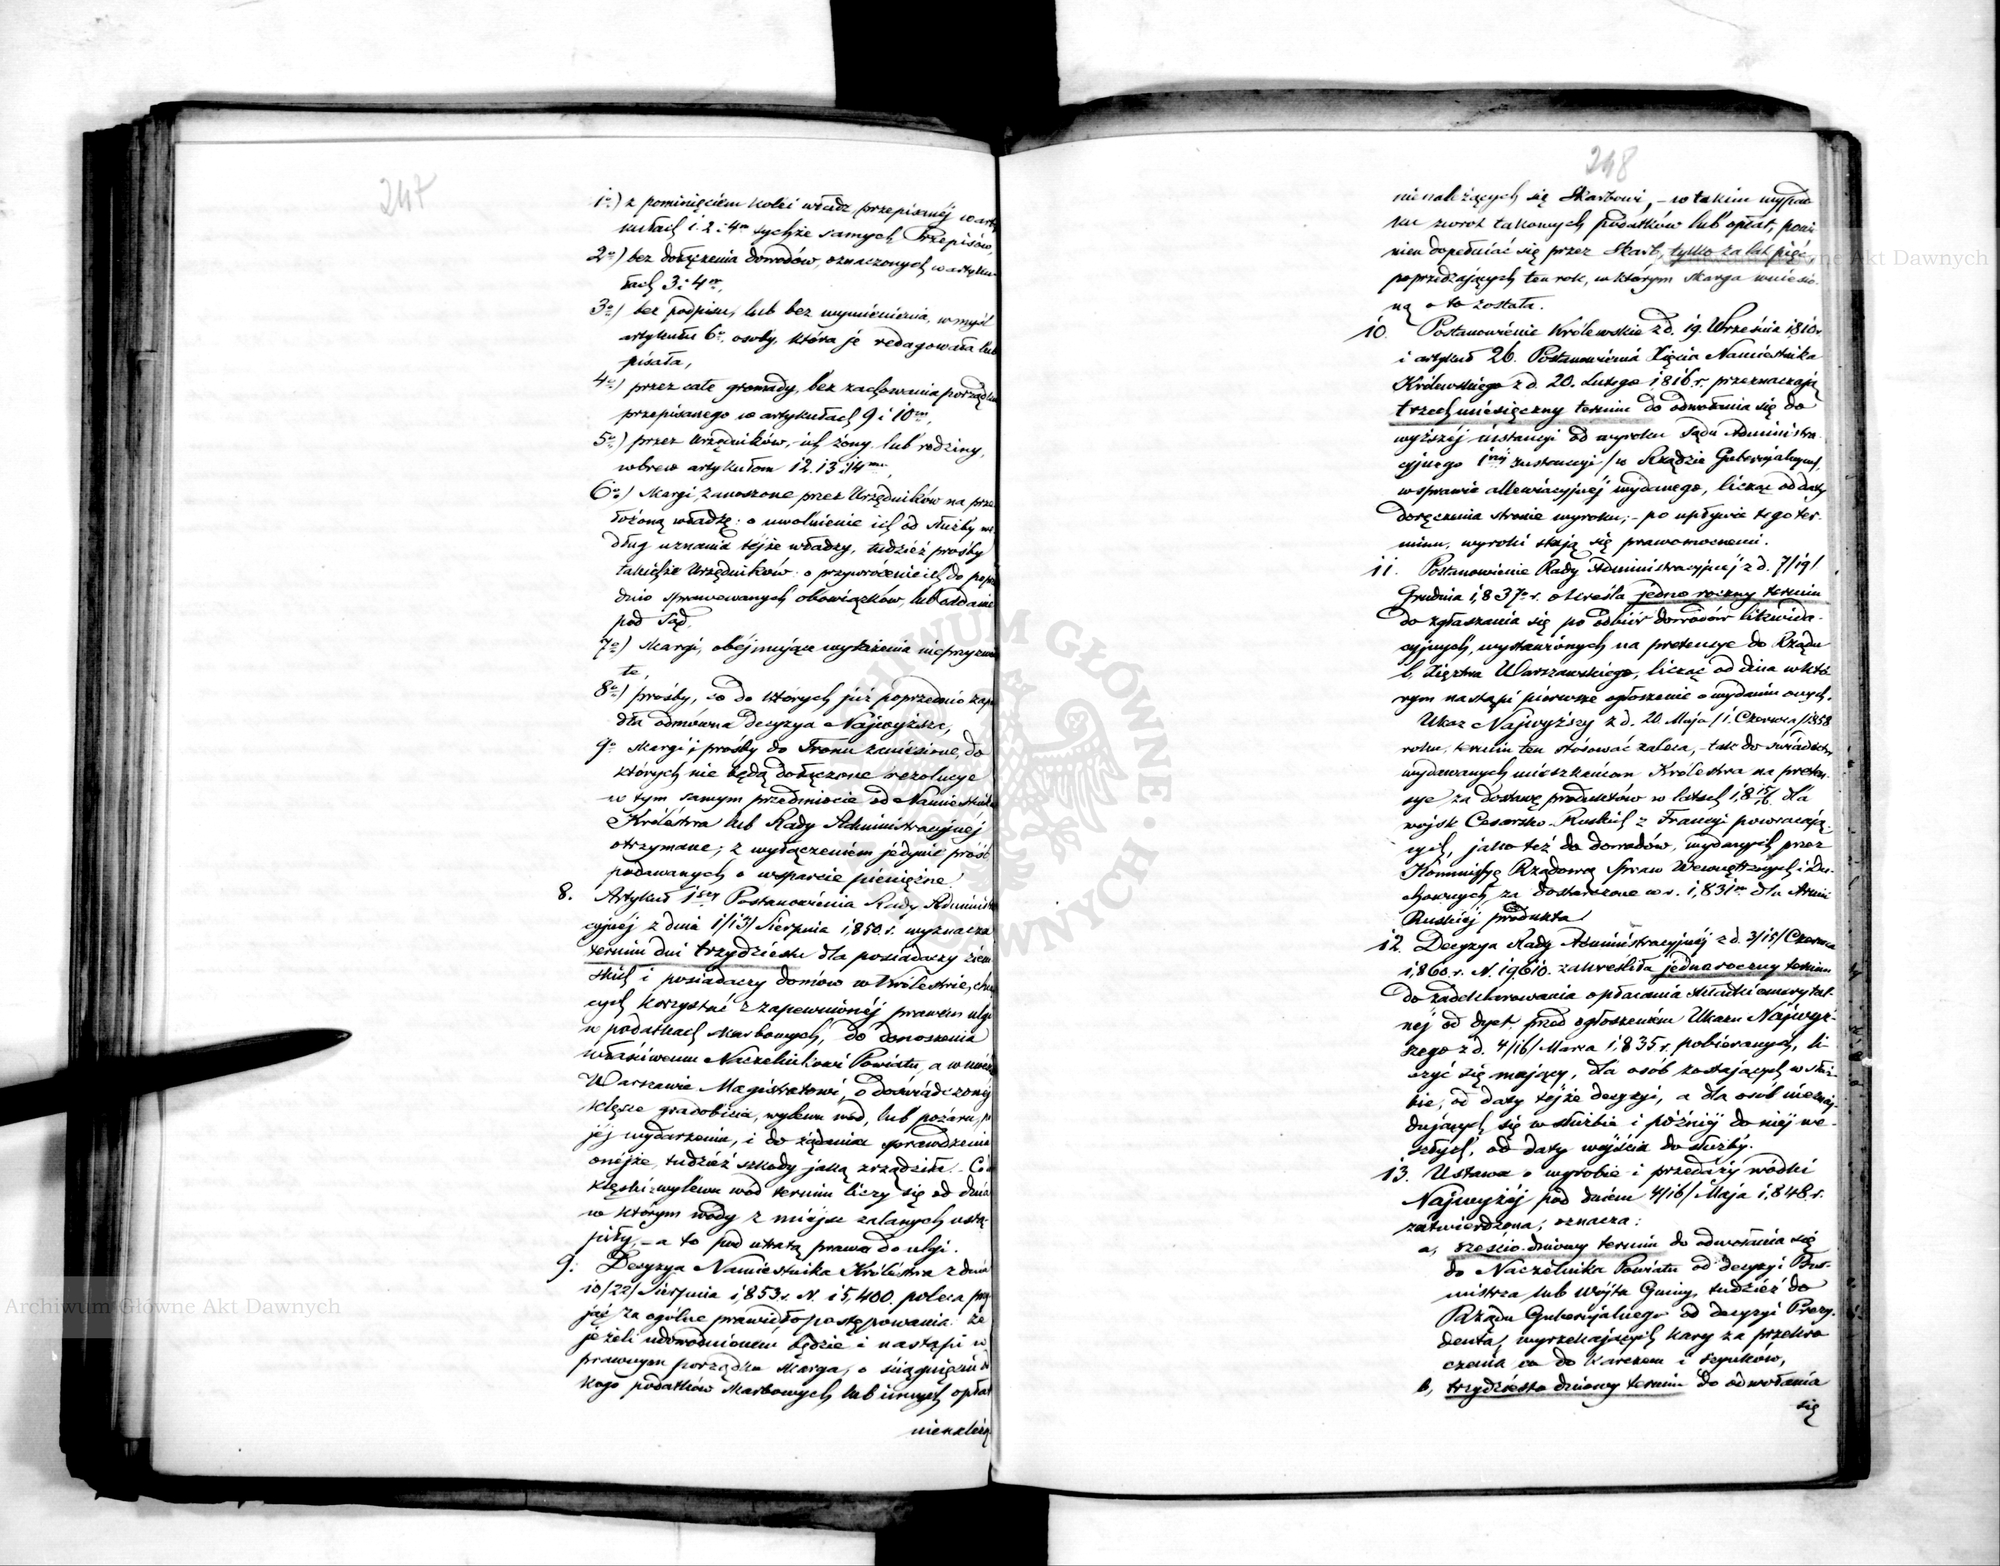 247
1o) z pominięciem kolei władz, przepisanéj w arty
kułach 1. 2 i 4m tychże samych Przepisów,
2o) bez dołączenia dowodów, oznaczonych w artyku-
łach 3 i 4m,
3o) bez podpisu, lub bez wymienienia, w myśl
artykułu 6o, osoby, która je redagowała lub
pisała,
4o) przez całe gromady, bez zachowania porządku
przepisanego w artykułach 9 i 10m,
5o) przez Urzędników, ich żony lub rodziny,
wbrew artykułom 12. 13 i 14m
6o) skargi, zanoszone przez Urzędników na prze
łożoną władzę: o uwolnienie ich od służby we
dług uznania tejże władzy, tudzież prośby
takichże Urzędników: o przywrócenie ich do poprze
dnio sprawowanych obowiązków, lub oddanie
pod Sąd.
7o) skargi, obejmujące wyrażenia nieprzyzwoi
te,
8o) prośby, co do których już poprzednio zapa
dła odmówna decyzya Najwyższa,
9o skargi i prośby do Tronu zaniesione, do
których nie będą dołączone rezolucye
w tym samym przedmiocie od Namiestnika
Królestwa lub Rady Administracyjnéj
otrzymane; z wyłączeniem jedynie próśb
podawanych o wsparcie pieniężne.
8. Artykuł 1szy Postanowienia Rady Administra
cyjnéj z dnia 1/13/ Sierpnia 1,850. r. wyznacza
termin dni trzydziestu dla posiadaczy ziem
skich i posiadaczy domów w Królestwie, chcą
cych korzystać z zapewnionéj prawem ulgi
w podatkach skarbowych, do donoszenia
właściwemu Naczelnikowi Powiatu, a w mieście
Warszawie Magistratowi, o doświadczonéj
klęsce gradobicia, wylewu wód, lub pożaru, po
jéj wydarzeniu, i do żądania sprawdzenia
onéjże, tudzież szkody jaką zrządziła. - Co do
klęski wylewu wód termin liczy się od dnia
w którym wody z miejsc zalanych ustą-
piły, - a to pod utratą prawa do ulgi.
9. Decyzya Namiestnika Królestwa z dnia
10/22/ Sierpnia 1,853. r. N. 15,400. poleca przy
jąć za ogólne prawidło postępowania: że
jeżeli udowodnionem będzie i nastąpi w
prawnym porządku skarga, o ściągnięciu z
kogo podatków skarbowych lub innych opłat
nienależą
248
nienależących się Skarbowi, - w takim wypad
ku zwrot takowych podatków lub opłat, powi
nien dopełniać się przez Skarb, tylko za lat pięć,
poprzedzających ten rok, w którym skarga wniesio-
ną o to została.
10. Postanowienie Królewskie z d. 19. Września 1,810 r
i artykuł 26. Postanowienia Xięcia Namiestnika
Królewskiego z d. 20. Lutego 1816 r. przeznaczają
trzechmiesięczny termin do odwołania się do
wyższéj instancyi od wyroku Sądu Administra-
cyjnego 1wéj Instancyi /w Rządzie Gubernjalnym/,
w sprawie allewiacyjnéj wydanego, licząc od daty
doręczenia stronie wyroku; - po upływie tego ter-
minu, wyroki stają się prawomocnemi.
11. Postanowienie Rady Administracyjnéj z d. 7/19/
Grudnia 1,837go r. określa jedno roczny termin
do zgłaszania się po odbiór dowodów likwida-
cyjnych, wystawionych na pretensye do Rządu
b. Xięztwa Warszawskiego, licząc od dnia w któ-
rym nastąpi pierwsze ogłoszenie o wydaniu onych.
Ukaz Najwyższy z d. 20. Maja /1. Czerwca/ 1858
roku, termin ten stósować zaleca, - tak do świadectw
wydawanych mieszkańcom Królestwa na preten-
sye za dostawę produktów w latach 1,815/16. dla
wojsk Cesarsko-Ruskich z Francyi powracają-
cych, jako też do dowodów, wydanych przez
Kommissyę Rządową Spraw Wewnętrznych i Du-
chownych, za dostarczone w r. 1,831m dla Armii
Ruskiéj produkta.
12. Decyzya Rady Administracyjnéj z d. 3/15/ Czerwca
1,860. r. N. 19610. zakreśliła jednoroczny termin
do zadeklarowania opłacania składki emerytal-
néj od dyet, przed ogłoszeniem Ukazu Najwyż-
szego z d. 4/16/ Marca 1,835 r. pobieranych, li-
czyć się mający, dla osób zostających w służ-
bie, od daty tejże decyzyi, a dla osób nieznaj-
dujących się w służbie i później do niéj we-
szłych, od daty wejścia do służby.
13. Ustawa o wyrobie i przedaży wódki
Najwyżéj pod dniem 4/16/ Maja 1,848 r.
zatwierdzona, oznacza:
a, sześcio-dniowy termin do odwołania się
do Naczelnika Powiatu od decyzyi Bur-
mistrza lub Wójta Gminy, tudzież do
Rządu Gubernjalnego od decyzyi Prezy-
denta, wyrzekających kary za przekro
czenia co do karczem i szynków,
b, trzydziesto dniowy termin do odwołania
się
Archiwum Główne Akt Dawnych
Archiwum Główne Akt Dawnych
ARCHIWUM GŁÓWNE AKT DAWNYCH